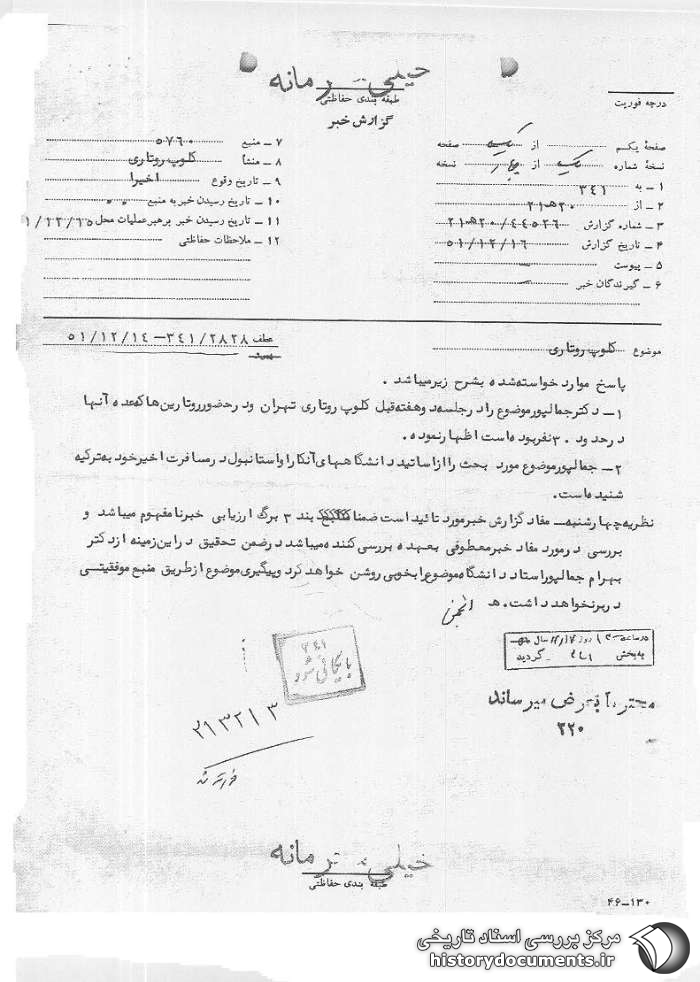 خیلی محرمانه
طبقه بندی حفاظتی
گزارش خبر
درجه فوریت
صفحهٔ یکم از یک صفحه
نسخهٔ شماره یک از چهار نسخه
۱ ــ به ۳٤۱
۲ ــ از ۲۰هـ۲۱
۳ ــ شماره گزارش ۲۰/٤٤٥۲٦هـ۲۱
۴ ــ تاریخ گزارش ٥۱/۱۲/۱٦
۵ ــ پیوست ــ
۶ ــ گیرندگان خبر
۷ ــ منبع ٥۷٦۰
۸ ــ منشأ کلوپ روتاری
۹ ــ تاریخ وقوع اخیرا
۱۰ ــ تاریخ رسیدن خبر به منبع ۰ ۰
۱۱ ــ تاریخ رسیدن خبر برهبر عملیات محل ۱/۱۲/۱٥
۱۲ ــ ملاحظات حفاظتی
موضوع کلوپ روتاری
عطف ۳٤۱/۲۸۲۸ ــ ٥۱/۱۲/۱٤
پاسخ موارد خواسته شده بشرح زیر میباشد .
۱ــ دکتر جمالپور موضوع را در جلسه دو هفته قبل کلوپ روتاری تهران و در حضور روتارین ها که عده آنها
در حدود ۳۰ نفر بوده است اظهار نموده .
۲ــ جمالپور موضوع مورد بحث را از اساتید دانشگاههای آنکارا و استانبول در مسافرت اخیر خود به ترکیه
شنیده است.
نظریه چهارشنبه ــ مفاد گزارش خبر مورد تائید است ضمنا بند ۳ برگ ارزیابی خبر نامفهوم میباشد و
بررسی در مورد مفاد خبر معطوفی بعهده بررسی کننده میباشد در ضمن تحقیق در این زمینه از دکتر
بهرام جمالپور استاد دانشگاه موضوع را بخوبی روشن خواهد کرد و پیگیری موضوع از طریق منبع موفقیتی
در بر نخواهد داشت. هـ انجمن
۳٤۱
بایگانی شود
به بخش گردید
محترما بعرض میرساند
۲۲۰
۲۱۳۲۱۳
خیلی محرمانه
طبقه بندی حفاظتی
۴۶ــ۱۳۰
مرکز بررسی اسناد تاریخی
historydocuments.ir